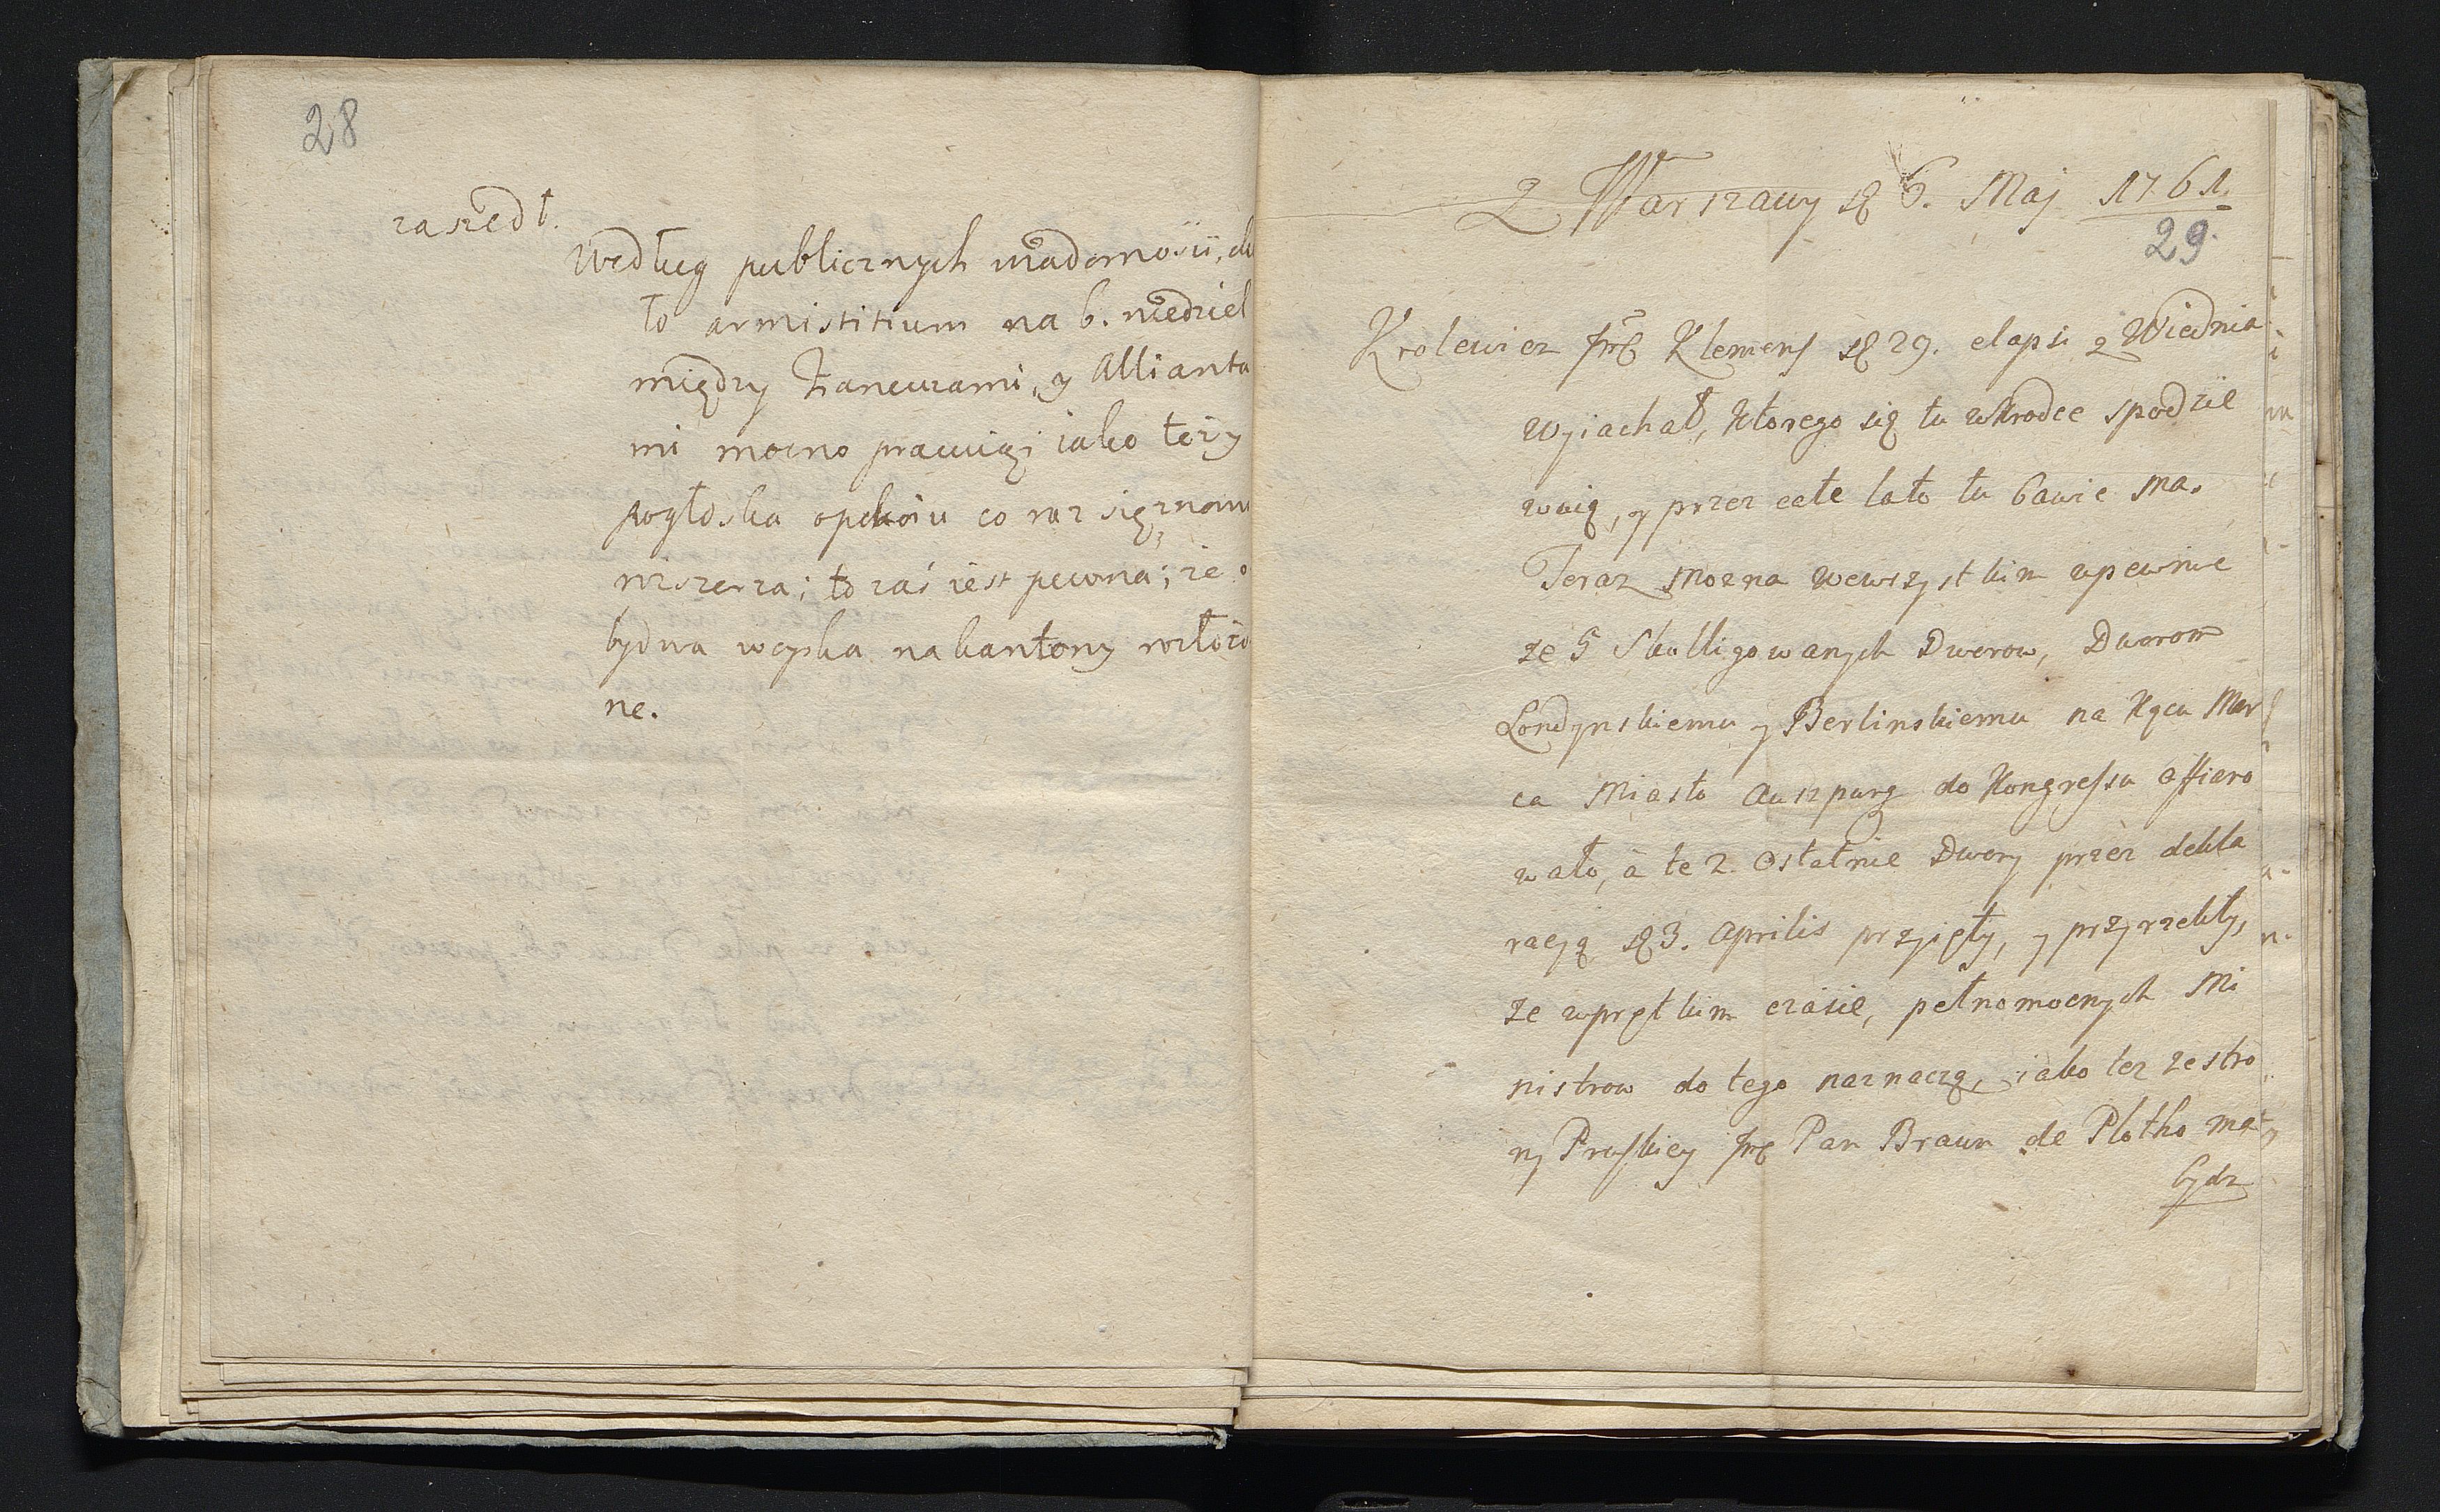 28
zaszedł.
Według publicznych wiadomości,
to armistitium na 6. niedziel
między Francuzami, y Allianta
mi mocno prawią iako też y
pogłoska o pokoiu co raz się znowu
rozszerza; to zaś iest pewna; że
byd na woyska na kantony rozłożo
ne.
Z Warszawy 6. Maj 1761.
29.
Krolewicz Jmć Klemens 29. elapsi z Wiednia
wyiachał, ktorego się tu wkrodce spodzie
waią, y przez całe lato tu bawic ma.
Teraz mozna wewszystkim upewnic
ze 5 Skolligowanych Dworow, Dworom
Londynskiemu y Berlinskiemu na Kącu Mar
ca Miasto Auszpurg do Kongressu offiaro
wało, à te 2. Ostatnie Dwory przez dekla
racyą 3. Aprilis przyięły, y przyrzekły,
ze wprętkim czásie, pełnomocnych Mi
nistrow do tego naznaczą, iako tez ze stro
ny Pruskiey Jmć Pan Braun de Plotho ma
bydz